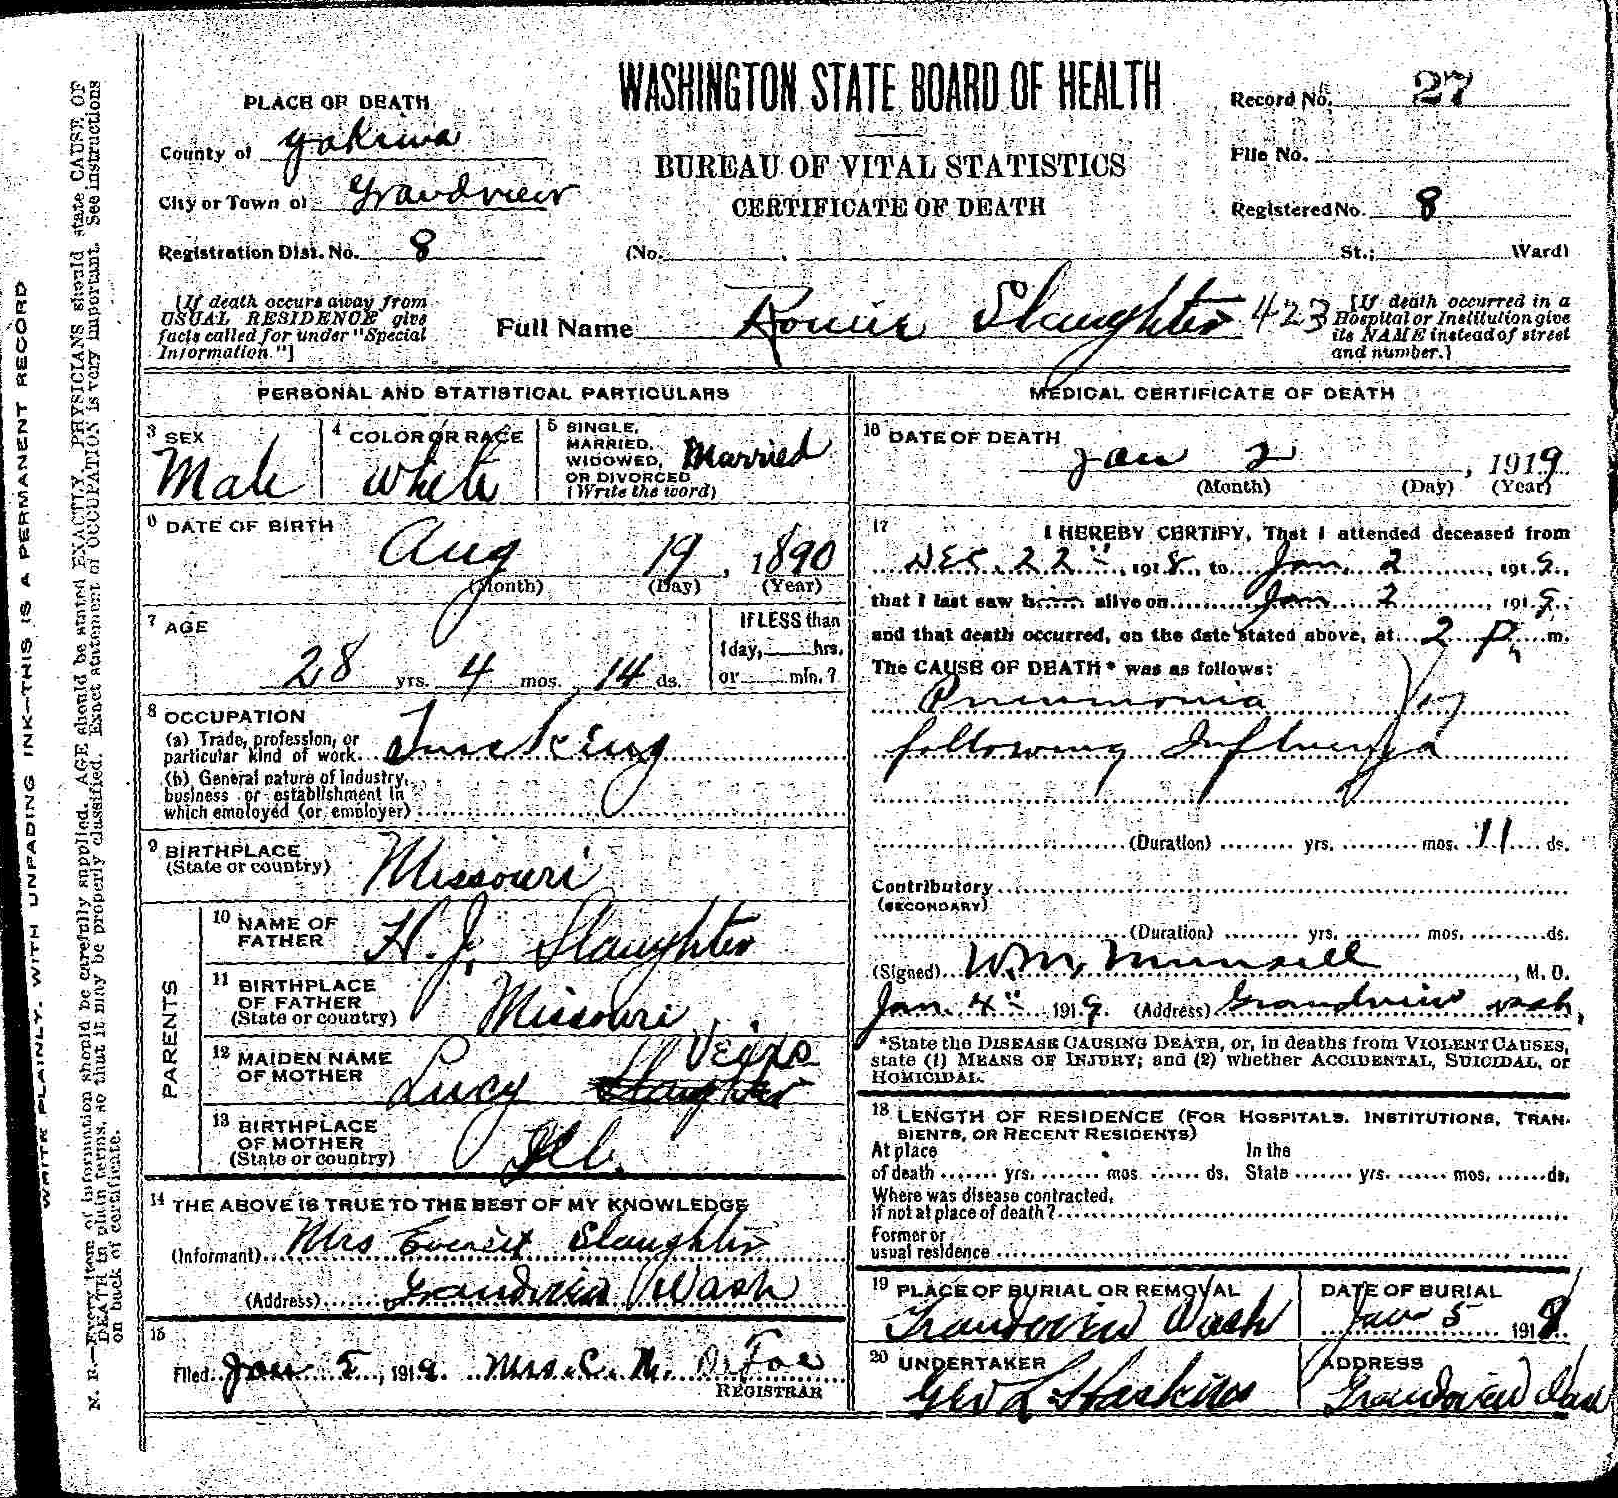 WASHINGTON STATE BOARD OF HEALTH
BUREAU OF VITAL STATISTICS
CERTIFICATE OF DEATH
PLACE OF DEATH
County of Yakima
City or Town of Grandview
Registration Dist. No. 8
Record No. 27
File No.
Registered No. 8
(No. St.; Ward)
[If death occurs away from
USUAL RESIDENCE give
facts called for under "Special
Information."]
Full Name Slaughter 423
[If death occurred in a
Hospital or Institution give
its NAME instead of street
and number.]
PERSONAL AND STATISTICAL PARTICULARS
3 SEX
Male
4 COLOR OR RACE
White
5 SINGLE,
MARRIED,
WIDOWED,
OR DIVORCED
(Write the word)
Married
6 DATE OF BIRTH
Aug 19, 1890
(Month) (Day) (Year)
7 AGE
28 yrs. 4 mos. 14 ds.
If LESS than
1 day, hrs.
or min.?
8 OCCUPATION
(a) Trade, profession, or
particular kind of work
(b) General nature of industry,
business or establishment in
which employed (or employer)
9 BIRTHPLACE
(State or country)
Missouri
PARENTS
10 NAME OF
FATHER
H. J. Slaughter
11 BIRTHPLACE
OF FATHER
(State or country)
Missouri
12 MAIDEN NAME
OF MOTHER
Lucy Slaughter
13 BIRTHPLACE
OF MOTHER
(State or country)
Ill.
14 THE ABOVE IS TRUE TO THE BEST OF MY KNOWLEDGE
(Informant) Mrs Everett Slaughter
(Address) Grandview Wash
15
Filed Jan 5, 1919. Mrs. C. M. DeFoe
REGISTRAR
MEDICAL CERTIFICATE OF DEATH
16 DATE OF DEATH
Jan 2, 1919
(Month) (Day) (Year)
17 I HEREBY CERTIFY, That I attended deceased from
Dec. 22", 1918, to Jan. 2, 1919,
that I last saw him alive on Jan 2, 1919,
and that death occurred, on the date stated above, at 2 P. m.
The CAUSE OF DEATH* was as follows:
Pneumonia
following Influenza
(Duration) yrs. mos. 11 ds.
Contributory
(SECONDARY)
(Duration) yrs. mos. ds.
(Signed) Wm. Munsell, M. D.
Jan. 4", 1919. (Address) Grandview Wash,
*State the DISEASE CAUSING DEATH, or, in deaths from VIOLENT CAUSES,
state (1) MEANS OF INJURY; and (2) whether ACCIDENTAL, SUICIDAL, or
HOMICIDAL.
18 LENGTH OF RESIDENCE (FOR HOSPITALS, INSTITUTIONS, TRAN-
SIENTS, OR RECENT RESIDENTS)
At place In the
of death yrs. mos ds. State yrs. mos. ds.
Where was disease contracted,
if not at place of death?
Former or
usual residence
19 PLACE OF BURIAL OR REMOVAL
Grandview Wash
DATE OF BURIAL
Jan 5 1919
20 UNDERTAKER
Geo L Haskins
ADDRESS
Grandview Wash
WRITE PLAINLY, WITH UNFADING INK—THIS IS A PERMANENT RECORD
N. B.—Every item of information should be carefully supplied. AGE should be stated EXACTLY. PHYSICIANS should state CAUSE OF
DEATH in plain terms, so that it may be properly classified. Exact statement of OCCUPATION is very important. See instructions
on back of certificate.